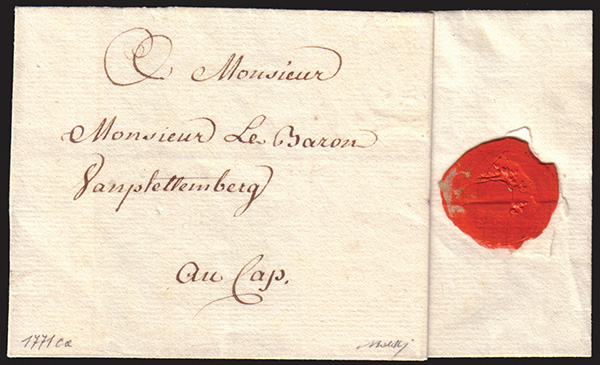 Monsieur
Monsieur Le Baron
Vanplettemberg
Au Cap.
1771 ca